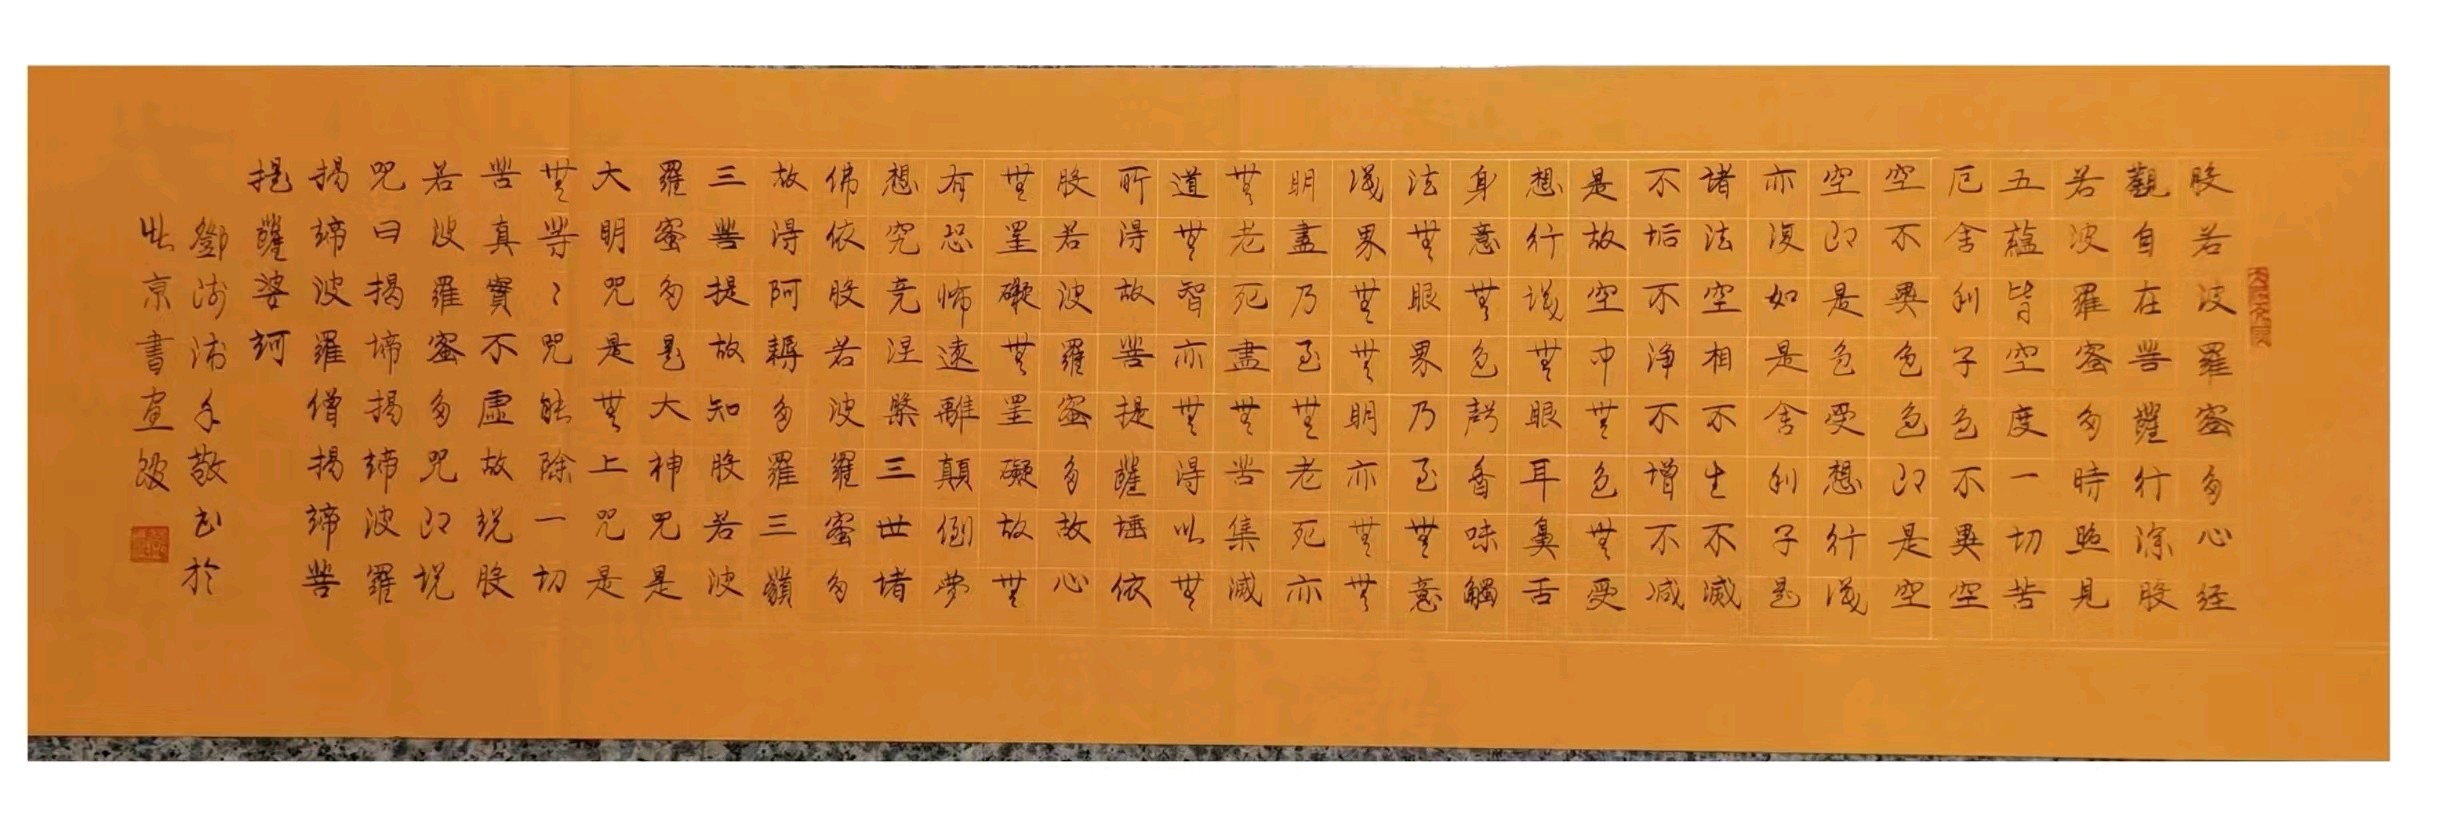 般若波羅蜜多心经
觀自在菩薩行深般
若波羅蜜多時照見
五蘊皆空度一切苦
厄舍利子色不異空
空不異色色即是空
空即是色受想行識
亦復如是舍利子是
諸法空相不生不滅
不垢不淨不增不减
是故空中無色無受
想行識無眼耳鼻舌
身意無色聲香味觸
法無眼界乃至無意
識界無無明亦無無
明盡乃至無老死亦
無老死盡無苦集滅
道無智亦無得以無
所得故菩提薩埵依
般若波羅蜜多故心
無罣礙無罣礙故無
有恐怖遠離顛倒夢
想究竟涅槃三世诸
佛依般若波羅蜜多
故得阿耨多羅三藐
三菩提故知般若波
羅蜜多是大神咒是
大明咒是無上咒是
無等〻咒能除一切
苦真實不虛故說般
若波羅蜜多咒即說
咒曰揭諦揭諦波羅
揭諦波羅僧揭諦菩
提薩婆訶
鄧沛敬书於
北京書画